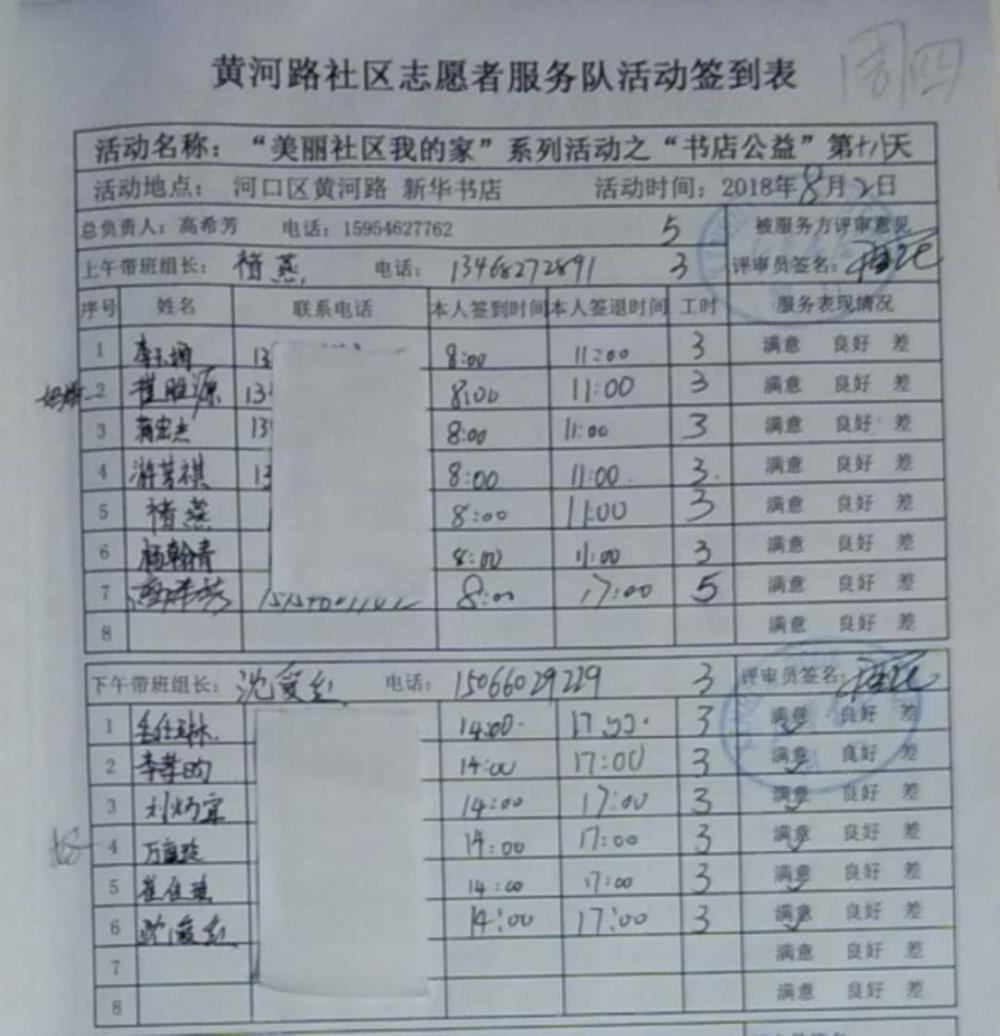 周四
黄河路社区志愿者服务队活动签到表
活动名称：“美丽社区我的家”系列活动之“书店公益”第十八天
活动地点： 河口区黄河路 新华书店 活动时间：2018年8月2日
总负责人：高希芳 电话：15954627762 5 被服务方评审意见
上午带班组长： 褚燕 电话： 13468272891 3 评审员签名：
序号 姓名 联系电话 本人签到时间 本人签退时间 工时 服务表现情况
1 13 8:00 11:00 3 满意 良好 差
2 崔胜源 13 8:00 11:00 3 满意 良好 差
3 蒋宏杰 13 8:00 11:00 3 满意 良好 差
4 13 8:00 11:00 3 满意 良好 差
5 褚燕 8:00 11:00 3 满意 良好 差
6 杨翰青 8:00 11:00 3 满意 良好 差
7 高希芳 8:00 17:00 5 满意 良好 差
8 满意 良好 差
下午带班组长： 沈爱红 电话： 15066029229 3 评审员签名：
1 14:00 17:00 3 满意 良好 差
2 李孝昀 14:00 17:00 3 满意 良好 差
3 刘炳宜 14:00 17:00 3 满意 良好 差
4 14:00 17:00 3 满意 良好 差
5 14:00 17:00 3 满意 良好 差
6 沈爱红 14:00 17:00 3 满意 良好 差
7 满意 良好 差
8 满意 良好 差